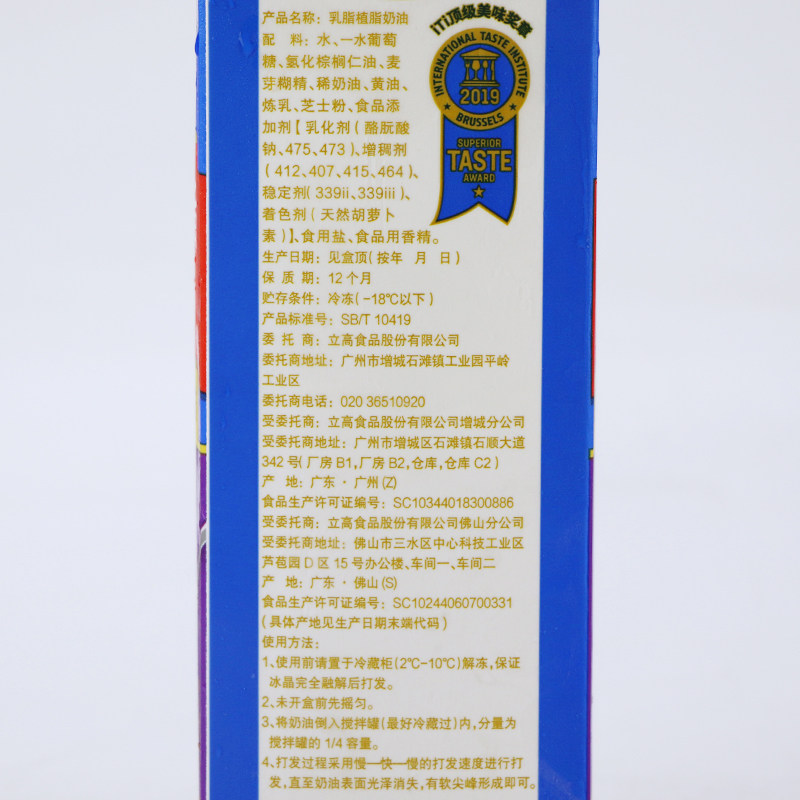 产品名称：乳脂植脂奶油
配　料：水、一水葡萄
糖、氢化棕榈仁油、麦
芽糊精、稀奶油、黄油、
炼乳、芝士粉、食品添
加剂【乳化剂（酪朊酸
钠,475、473）、增稠剂
（412、407、415、464）、
稳定剂（339ii、339iii）、
着色剂（天然胡萝卜
素）】、食用盐、食品用香精。
生产日期：见盒顶（按年　月　日）
保 质 期：12个月
贮存条件：冷冻（-18℃以下）
产品标准号：SB/T 10419
委 托 商：立高食品股份有限公司
委托商地址：广州市增城石滩镇工业园平岭
工业区
委托商电话：020 36510920
受委托商：立高食品股份有限公司增城分公司
受委托商地址：广州市增城区石滩镇石顺大道
342号（厂房B1,厂房B2,仓库,仓库C2）
产　地：广东·广州(Z)
食品生产许可证编号：SC10344018300886
受委托商：立高食品股份有限公司佛山分公司
受委托商地址：佛山市三水区中心科技工业区
芦苞园D区15号办公楼、车间一、车间二
产　地：广东·佛山(S)
食品生产许可证编号：SC10244060700331
（具体产地见生产日期末端代码）
使用方法：
1、使用前请置于冷藏柜(2℃-10℃)解冻,保证
冰晶完全融解后打发。
2、未开盒前先摇匀。
3、将奶油倒入搅拌罐(最好冷藏过)内,分量为
搅拌罐的1/4容量。
4、打发过程采用慢—快—慢的打发速度进行打
发,直至奶油表面光泽消失,有软尖峰形成即可。
iTi顶级美味奖章
INTERNATIONAL TASTE INSTITUTE
2019
BRUSSELS
SUPERIOR
TASTE
AWARD